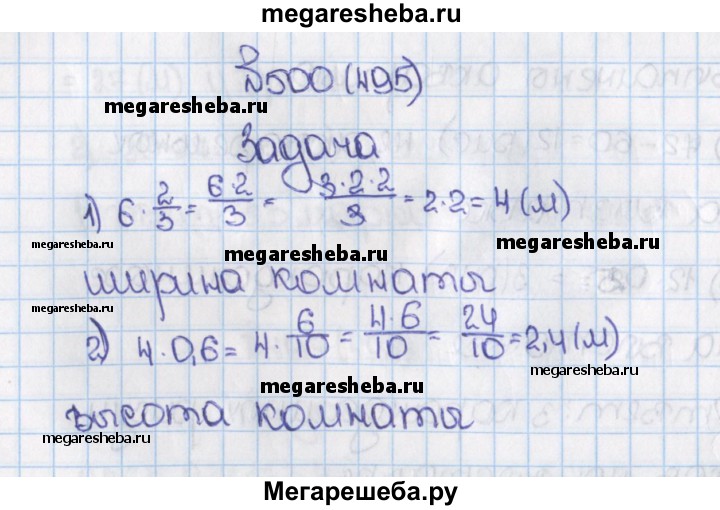 megaresheba.ru
№500 (495)
megaresheba.ru
megaresheba.ru
Задача
1) 6 · 2/3 = 6·2/3 = 3·2·2/3 = 2·2 = 4 (м)
megaresheba.ru
megaresheba.ru
megaresheba.ru
ширина комнаты
megaresheba.ru
2) 4 · 0,6 = 4 · 6/10 = 4·6/10 = 24/10 = 2,4 (м)
megaresheba.ru
megaresheba.ru
высота комнаты
megaresheba.ru
megaresheba.ru
Мегарешеба.ру